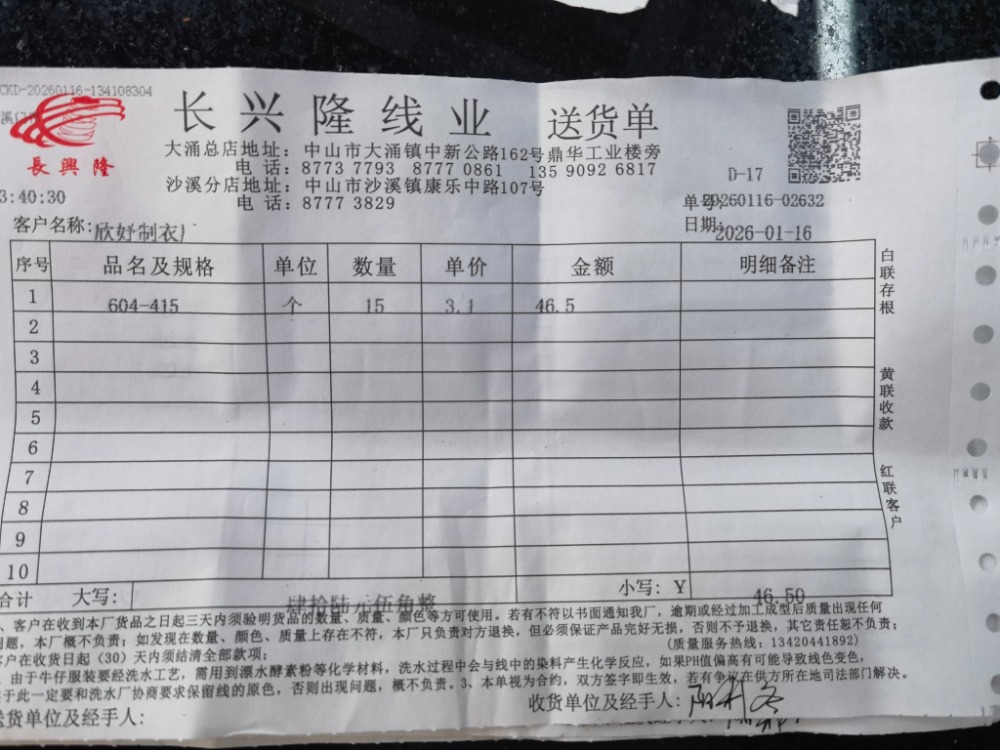 CKD-20260116-134108304
長興隆
长兴隆线业 送货单
大涌总店地址：中山市大涌镇中新公路162号鼎华工业楼旁
电话：8773 7793 8777 0861 135 9092 6817
沙溪分店地址：中山市沙溪镇康乐中路107号
电话：8777 3829
D-17
3:40:30
单号:20260116-02632
客户名称:欣妤制衣厂
日期:2026-01-16
序号 品名及规格 单位 数量 单价 金额 明细备注
1 604-415 个 15 3.1 46.5
2
3
4
5
6
7
8
9
10
白联存根
黄联收款
红联客户
合计 大写: 肆拾陆元伍角整 小写: ￥ 46.50
、客户在收到本厂货品之日起三天内须验明货品的数量、质量、颜色等方可使用。若有不符以书面通知我厂，逾期或经过加工成型后质量出现任何
问题，本厂概不负责；如发现在数量、颜色、质量上存在不符，本厂只负责对方退换，但必须保证产品完好无损，否则不予退换，其它责任恕不负责；
客户在收货日起（30）天内须结清全部款项； （质量服务热线：13420441892）
、由于牛仔服装要经洗水工艺，需用到漂水酵素粉等化学材料，洗水过程中会与线中的染料产生化学反应，如果PH值偏高有可能导致线色变色，
基于此一定要和洗水厂协商要求保留线的原色，否则出现问题，概不负责。3、本单视为合约，双方签字即生效，若有争议在供方所在地司法部门解决。
送货单位及经手人： 收货单位及经手人：